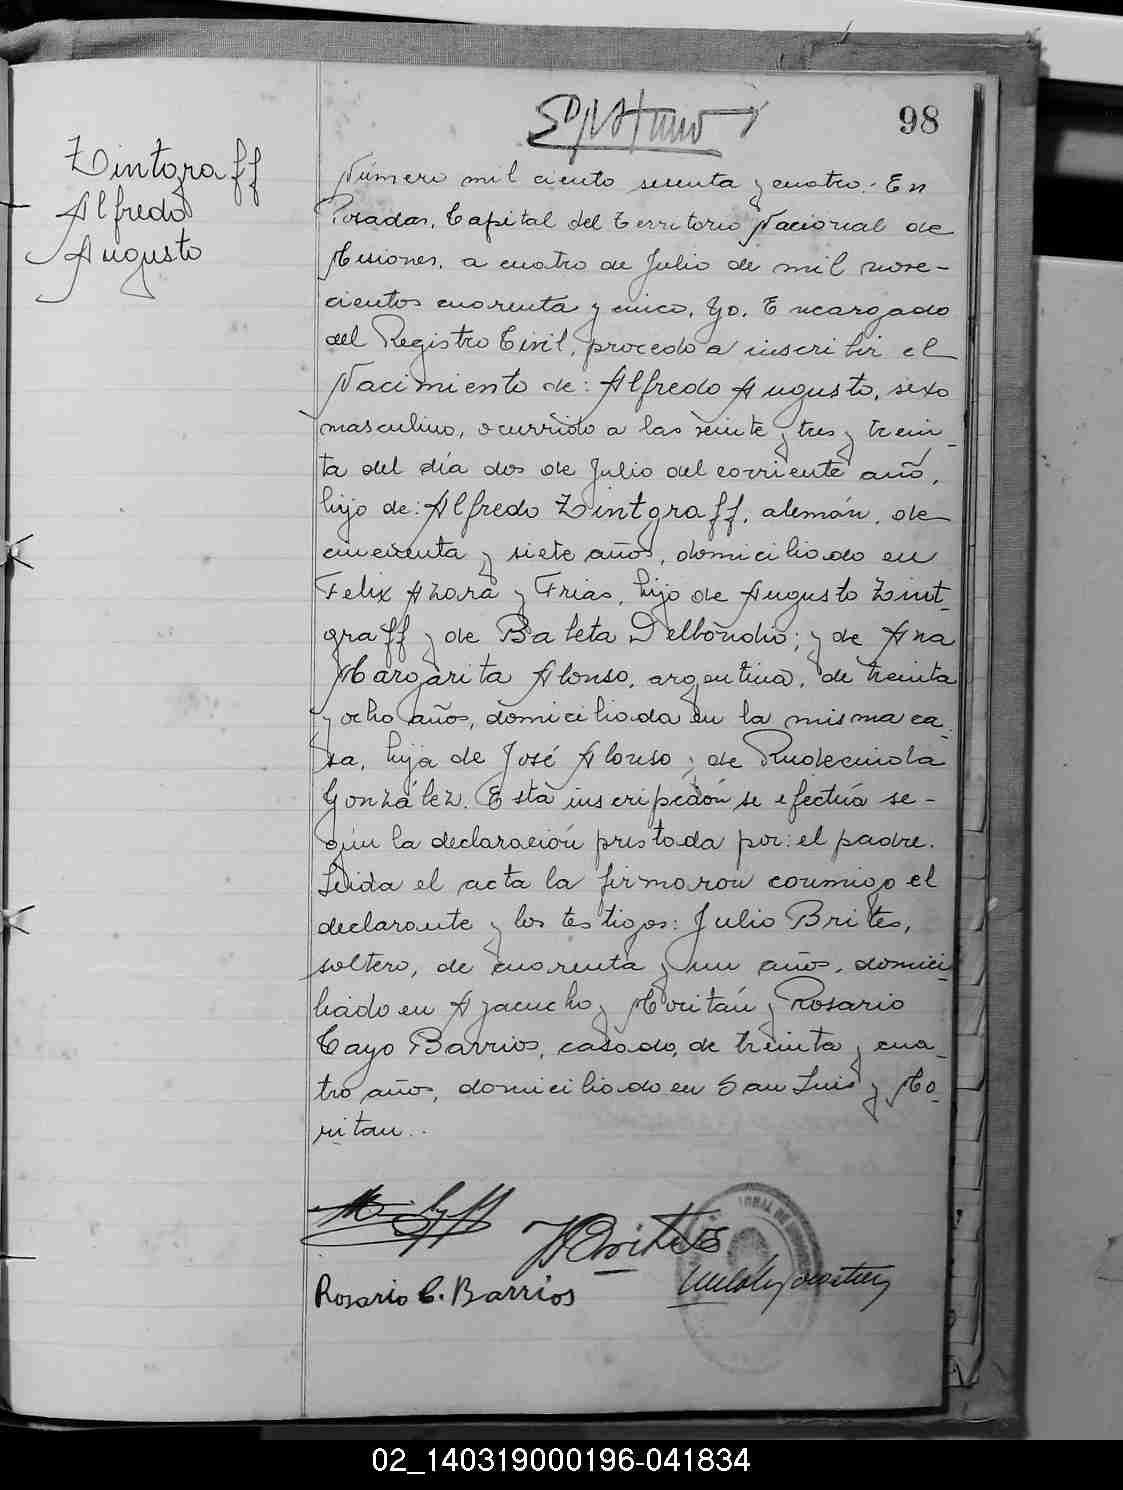 98
Zintgraff
Alfredo
Augusto
Número mil ciento sesenta y cuatro.- En
Posadas, Capital del Territorio Nacional de
Misiones, a cuatro de Julio de mil nove-
cientos cuarenta y cinco, Yo, Encargado
del Registro Civil, procedo a inscribir el
Nacimiento de: Alfredo Augusto, sexo
masculino, ocurrido a las veinte y tres y trein-
ta del día dos de Julio del corriente año,
hijo de: Alfredo Zintgraff, alemán, de
cincuenta y siete años, domiciliado en
Felix Azara y Frias, hijo de Augusto Zint-
graff y de Baleta Delbondio; y de Ana
Margarita Alonso, argentina, de treinta
y ocho años, domiciliada en la misma ca-
sa, hija de José Alonso y de Rudecinda
González. Esta inscripción se efectúa se-
gún la declaración prestada por: el padre.
Leida el acta la firmaron conmigo el
declarante y los testigos: Julio Brites,
soltero, de cuarenta y un años, domici-
liado en Ayacucho y Moritán y Rosario
Cayo Barrios, casado, de treinta y cua-
tro años, domiciliado en San Luis y Mo-
ritan..
JBrites
Rosario C. Barrios
02_140319000196-041834